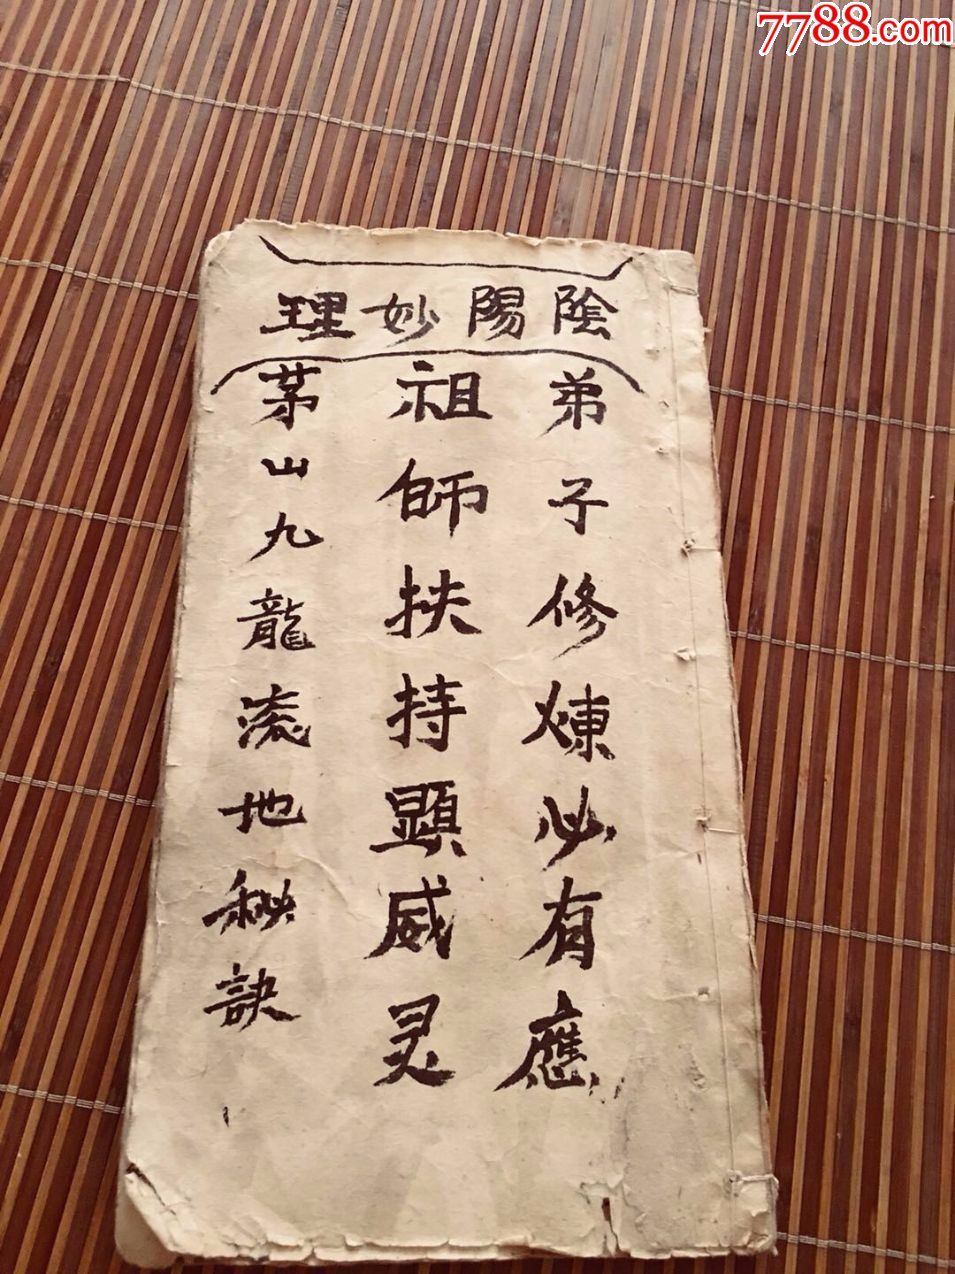 7788.com
陰陽妙理
弟子修煉必有應
祖師扶持顕威灵
茅山九龍流地秘訣